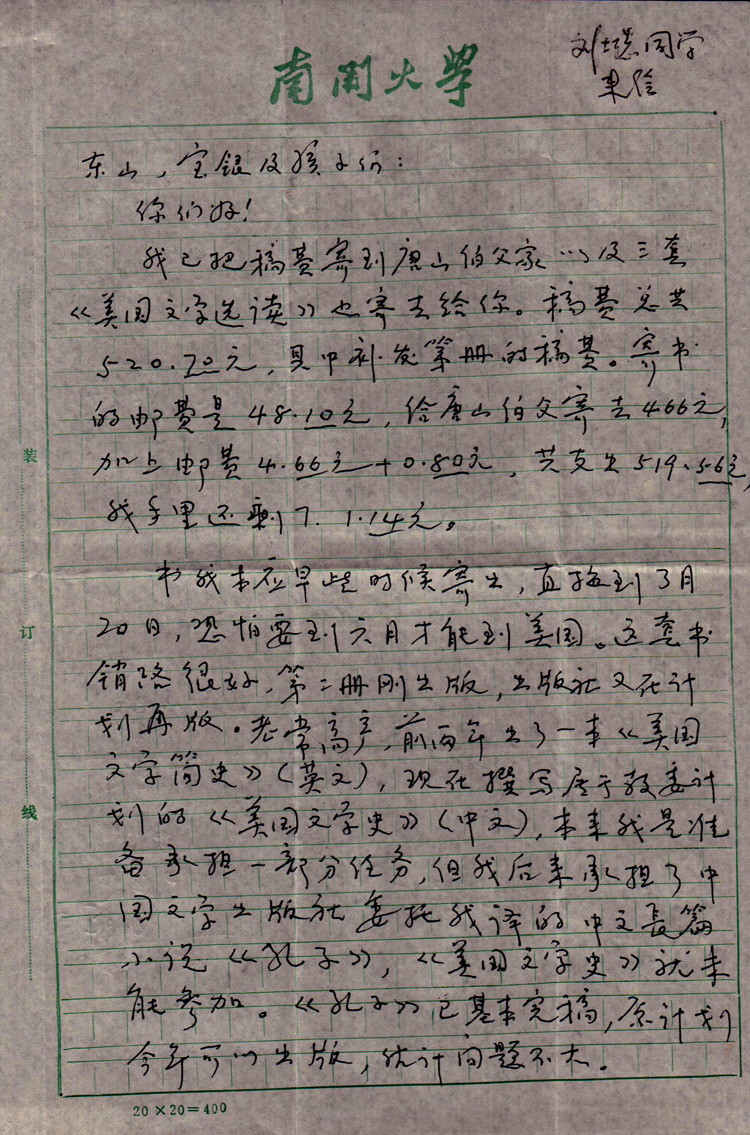 刘士聪同学
来信
南开大学
东山，宝银及孩子们：
你们好！
我已把稿费寄到唐山伯父家以及三套
《美国文学选读》也寄去给你。稿费总共
520.70元，其中补发第册的稿费。寄书
的邮费是48.10元，给唐山伯父寄去466元，
加上邮费4.66元+0.80元，共支出519.56元，
我手里还剩了1.14元。
书我本应早些时候寄出，直拖到3月
20日，恐怕要到六月才能到美国。这套书
销路很好，第二册刚出版，出版社又在计
划再版。老常高产，前两年出了一本《美国
文学简史》（英文），现在撰写属于教委计
划的《美国文学史》（中文），本来我是准
备承担一部分任务，但我后来承担了中
国文学出版社委托我译的中文长篇
小说《孔子》，《美国文学史》就未
能参加。《孔子》已基本完稿，原计划
今年可以出版，估计问题不大。
装
订
线
20×20=400